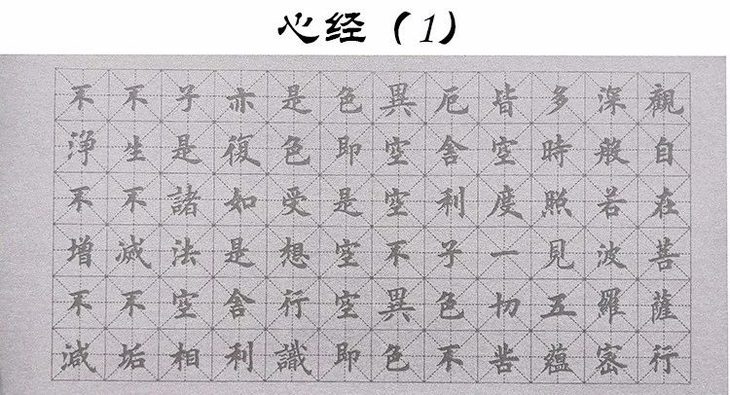 心经（1）
觀自在菩薩行
深般若波羅密
多時照見五蘊
皆空度一切苦
厄舍利子色不
異空空不異色
色即是空空即
是色受想行識
亦復如是舍利
子是諸法空相
不生不滅不垢
不淨不增不減